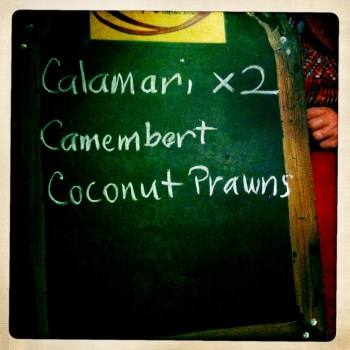 Calamari x2
Camembert
Coconut Prawns